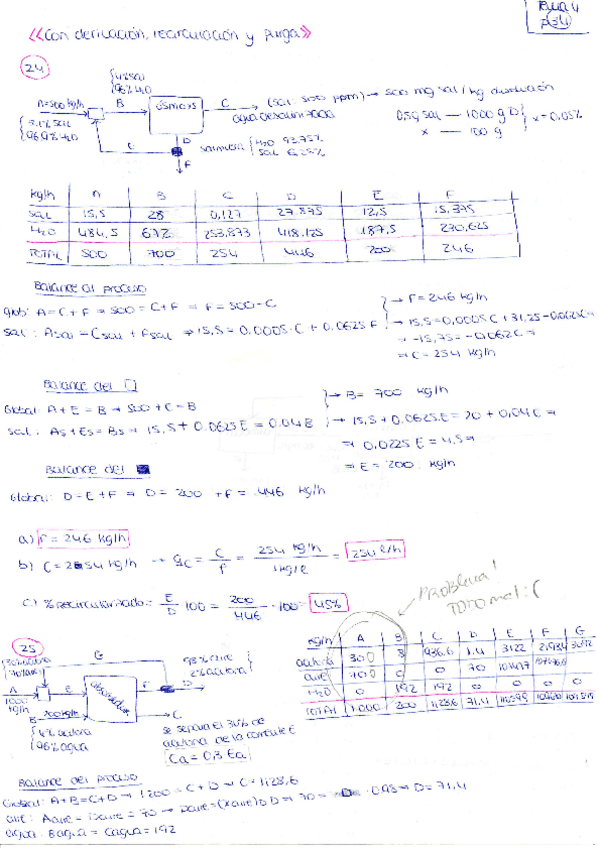 Tema 4
P34
<<Con derivación, recirculación y purga>>
24
{4% sal
96% H2O
A=500 kg/h
B
ósmosis
C
(sal 500 ppm) → 500 mg sal / kg disolución
agua desalinizada
0,5 g sal — 1000 g D } x = 0,05%
x — 100 g
{3,1% sal
96,9% H2O
E
D
salmuera { H2O 93,75%
sal 6,25%
F
kg/h | A | B | C | D | E | F
sal | 15,5 | 28 | 0,127 | 27,875 | 12,5 | 15,375
H2O | 484,5 | 672 | 253,873 | 418,125 | 187,5 | 230,625
TOTAL | 500 | 700 | 254 | 446 | 200 | 246
Balance al proceso
glob: A = C + F ⇒ 500 = C + F ⇒ F = 500 - C
→ F = 246 kg/h
sal: Asal = Csal + Fsal ⇒ 15,5 = 0,0005·C + 0,0625 F
→ 15,5 = 0,0005C + 31,25 - 0,0625C ⇒
⇒ -15,75 = -0,062C ⇒
⇒ C = 254 kg/h
Balance del []
Global: A + E = B ⇒ 500 + E = B
→ B = 700 kg/h
sal: As + Es = Bs ⇒ 15,5 + 0,0625E = 0,04B
→ 15,5 + 0,0625E = 20 + 0,04E ⇒
⇒ 0,0225E = 4,5 ⇒
⇒ E = 200 kg/h
Balance del ■
Global: D = E + F ⇒ D = 200 + F = 446 kg/h
a) F = 246 kg/h
b) C = 254 kg/h → Qc = C/ρ = 254 kg/h / 1 kg/l = 254 l/h
c) % recircularizado = E/D · 100 = 200/446 · 100 = 45%
PROBLEMA!
TODO mal :(
25
30% acetona
70% aire
G
98% aire
2% acetona
A
1000 kg/h
E
absorbedor
F
D
B
200 kg/h
C
{4% acetona
96% agua
se separa el 30% de
acetona de la corriente E
Ca = 0,3 Ea
kg/h | A | B | C | D | E | F | G
acetona | 300 | 8 | 936,6 | 1,4 | 3122
aire | 700 | 0 | 0 | 70
H2O | 0 | 192 | 192 | 0 | 0 | 0 | 0
TOTAL | 1000 | 200 | 1128,6 | 71,4
Balance del proceso
Global: A + B = C + D → 1200 = C + D → C = 1128,6
aire: Aaire = Daire = 70 → Daire = (Xaire)D D ⇒ 70 = D · 0,98 ⇒ D = 71,4
agua: Bagua = Cagua = 192